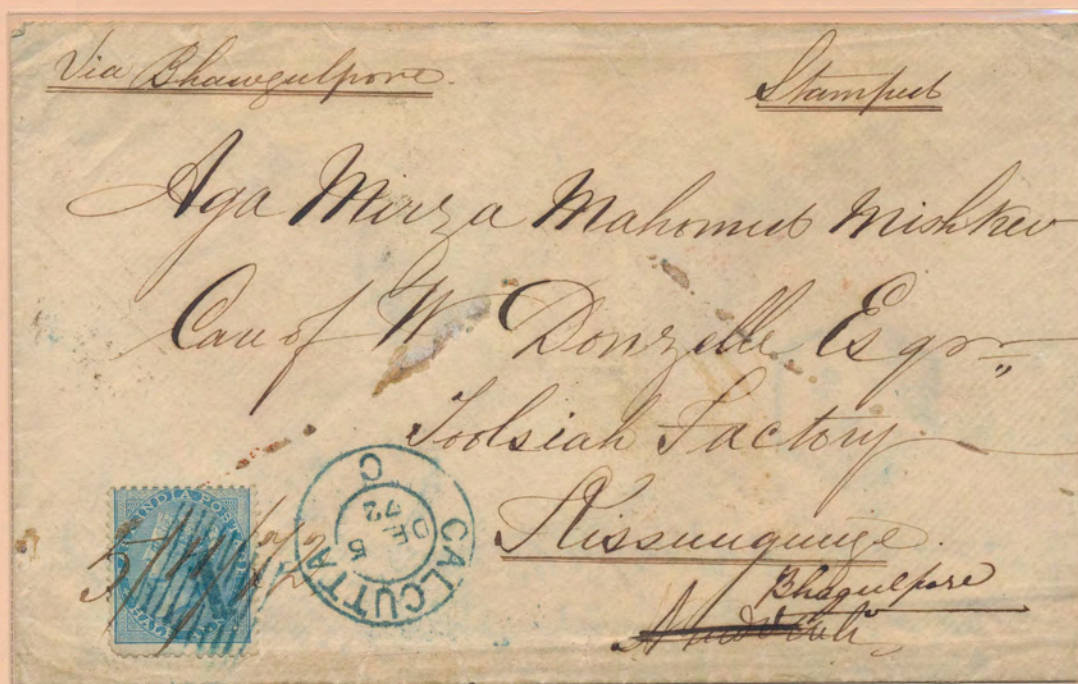 Via Bhawgulpore.
Stamped
Aga Mirza Mahomed Mishkev
Care of W Donzelle Esqre
Toolsiah Factory
Kissengunge.
Bhagulpore
CALCUTTA
C
DE 5
72
INDIA POSTAGE
HALF ANNA